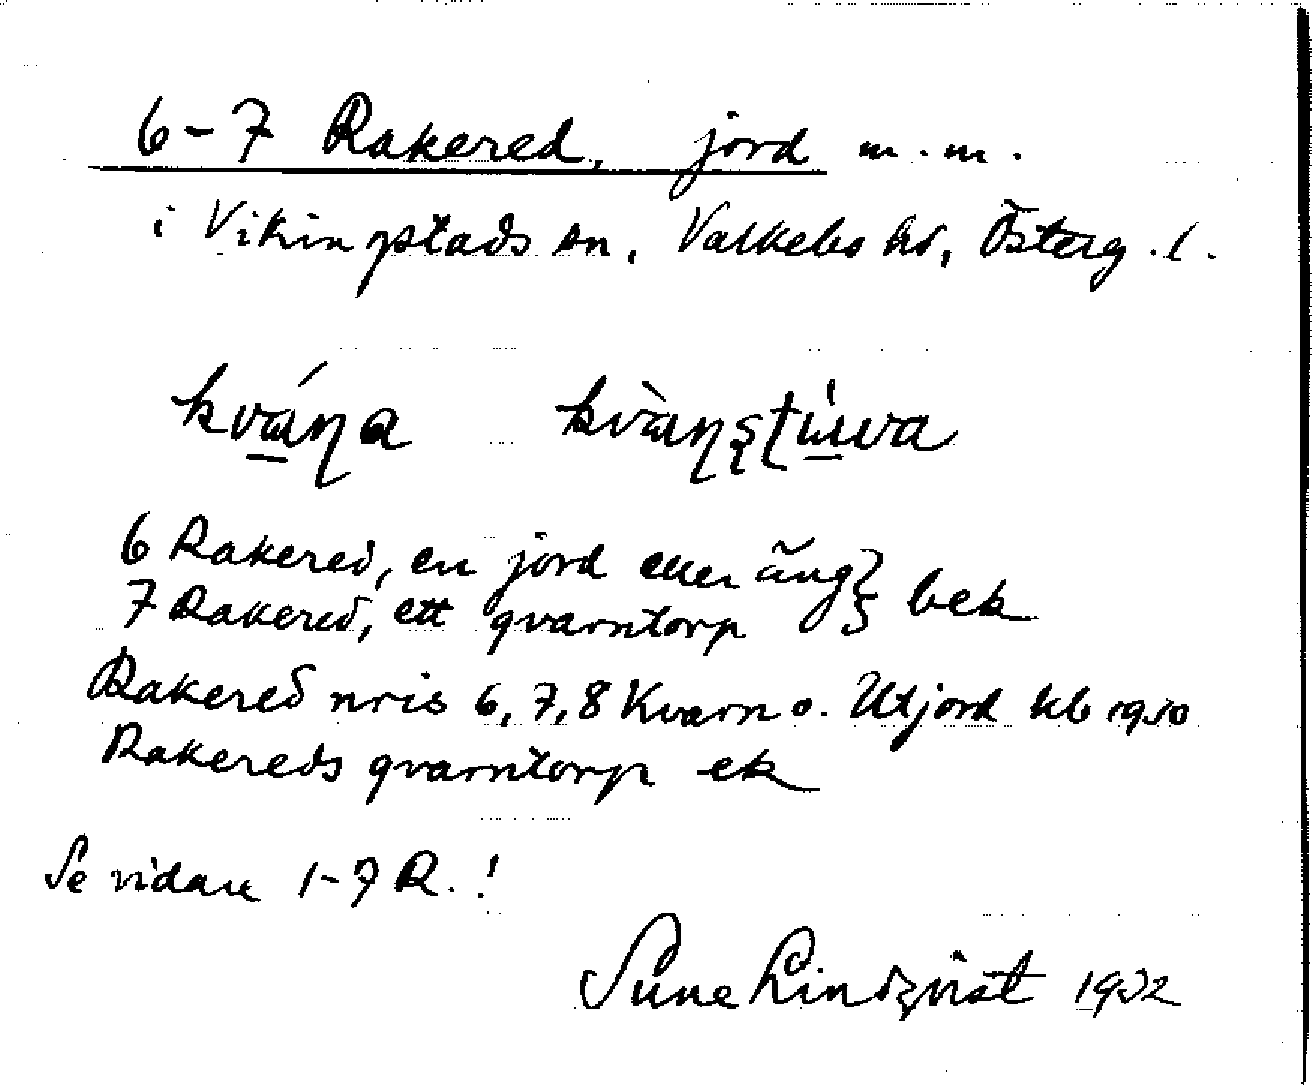 6-7 Rakered, jord m.m.
i Vikingstads sn, Valkebo hd, Österg.l.
kvána kvànstùva
6 Rakered, en jord eller äng } bek
7 Rakered, ett qvarntorp
Rakered nris 6,7,8 Kvarn o. Utjord kb 1950
Rakereds qvarntorp ek
Se vidare 1-7 R.!
Sune Lindqvist 1932